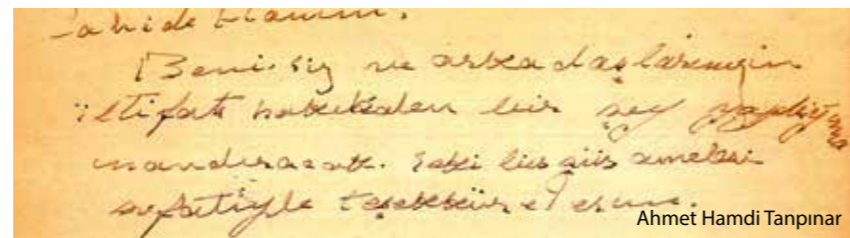 Hanım.
Beni siz ve arkadaşlarınızın
iltifatı hakikaten bir şey yaptığıma
inandıracak. Eski bir şiir amelesi
sıfatiyle teşekkür ederim.
Ahmet Hamdi Tanpınar